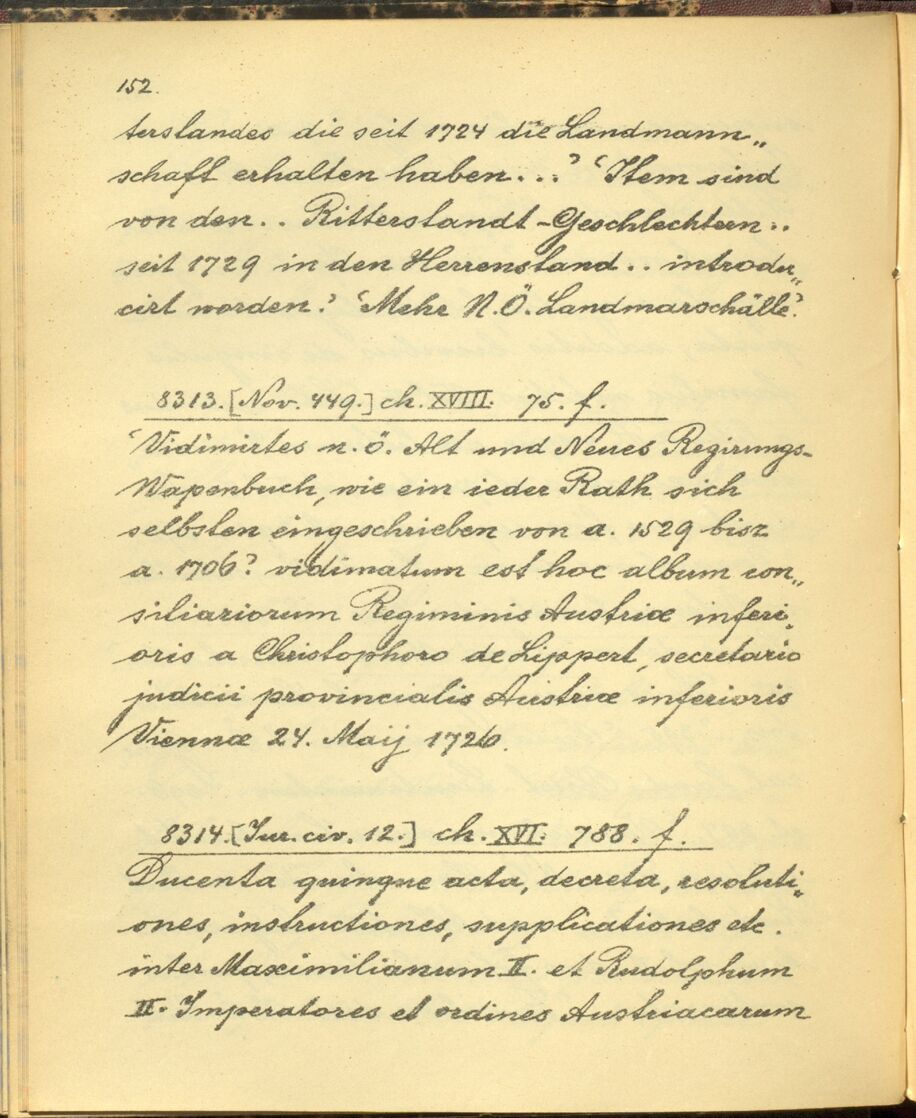 152.
terslandes die seit 1724 die Landmann„
schaft erhalten haben...' 'Item sind
von den.. Ritterslandt-Geschlechtern..
seit 1729 in den Herrenstand.. introdu„
cirt worden.' 'Mehr N.Ö. Landmarschälle'.
8313. [Nov. 449.] ch. XVIII. 75. f.
'Vidimirtes n. ö. Alt und Neues Regirungs-
Wapenbuch, wie ein ieder Rath sich
selbsten eingeschrieben von a. 1529 bisz
a. 1706.' vidimatum est hoc album con„
siliariorum Regiminis Austriæ inferi„
oris a Christophoro de Lippert, secretario
judicii provincialis Austriæ inferioris
Viennæ 24. Maij 1726.
8314. [Jur. civ. 12.] ch. XVI. 788. f.
Ducenta quinque acta, decreta, resoluti„
ones, instructiones, supplicationes etc.
inter Maximilianum II. et Rudolphum
II. Imperatores et ordines Austriacarum